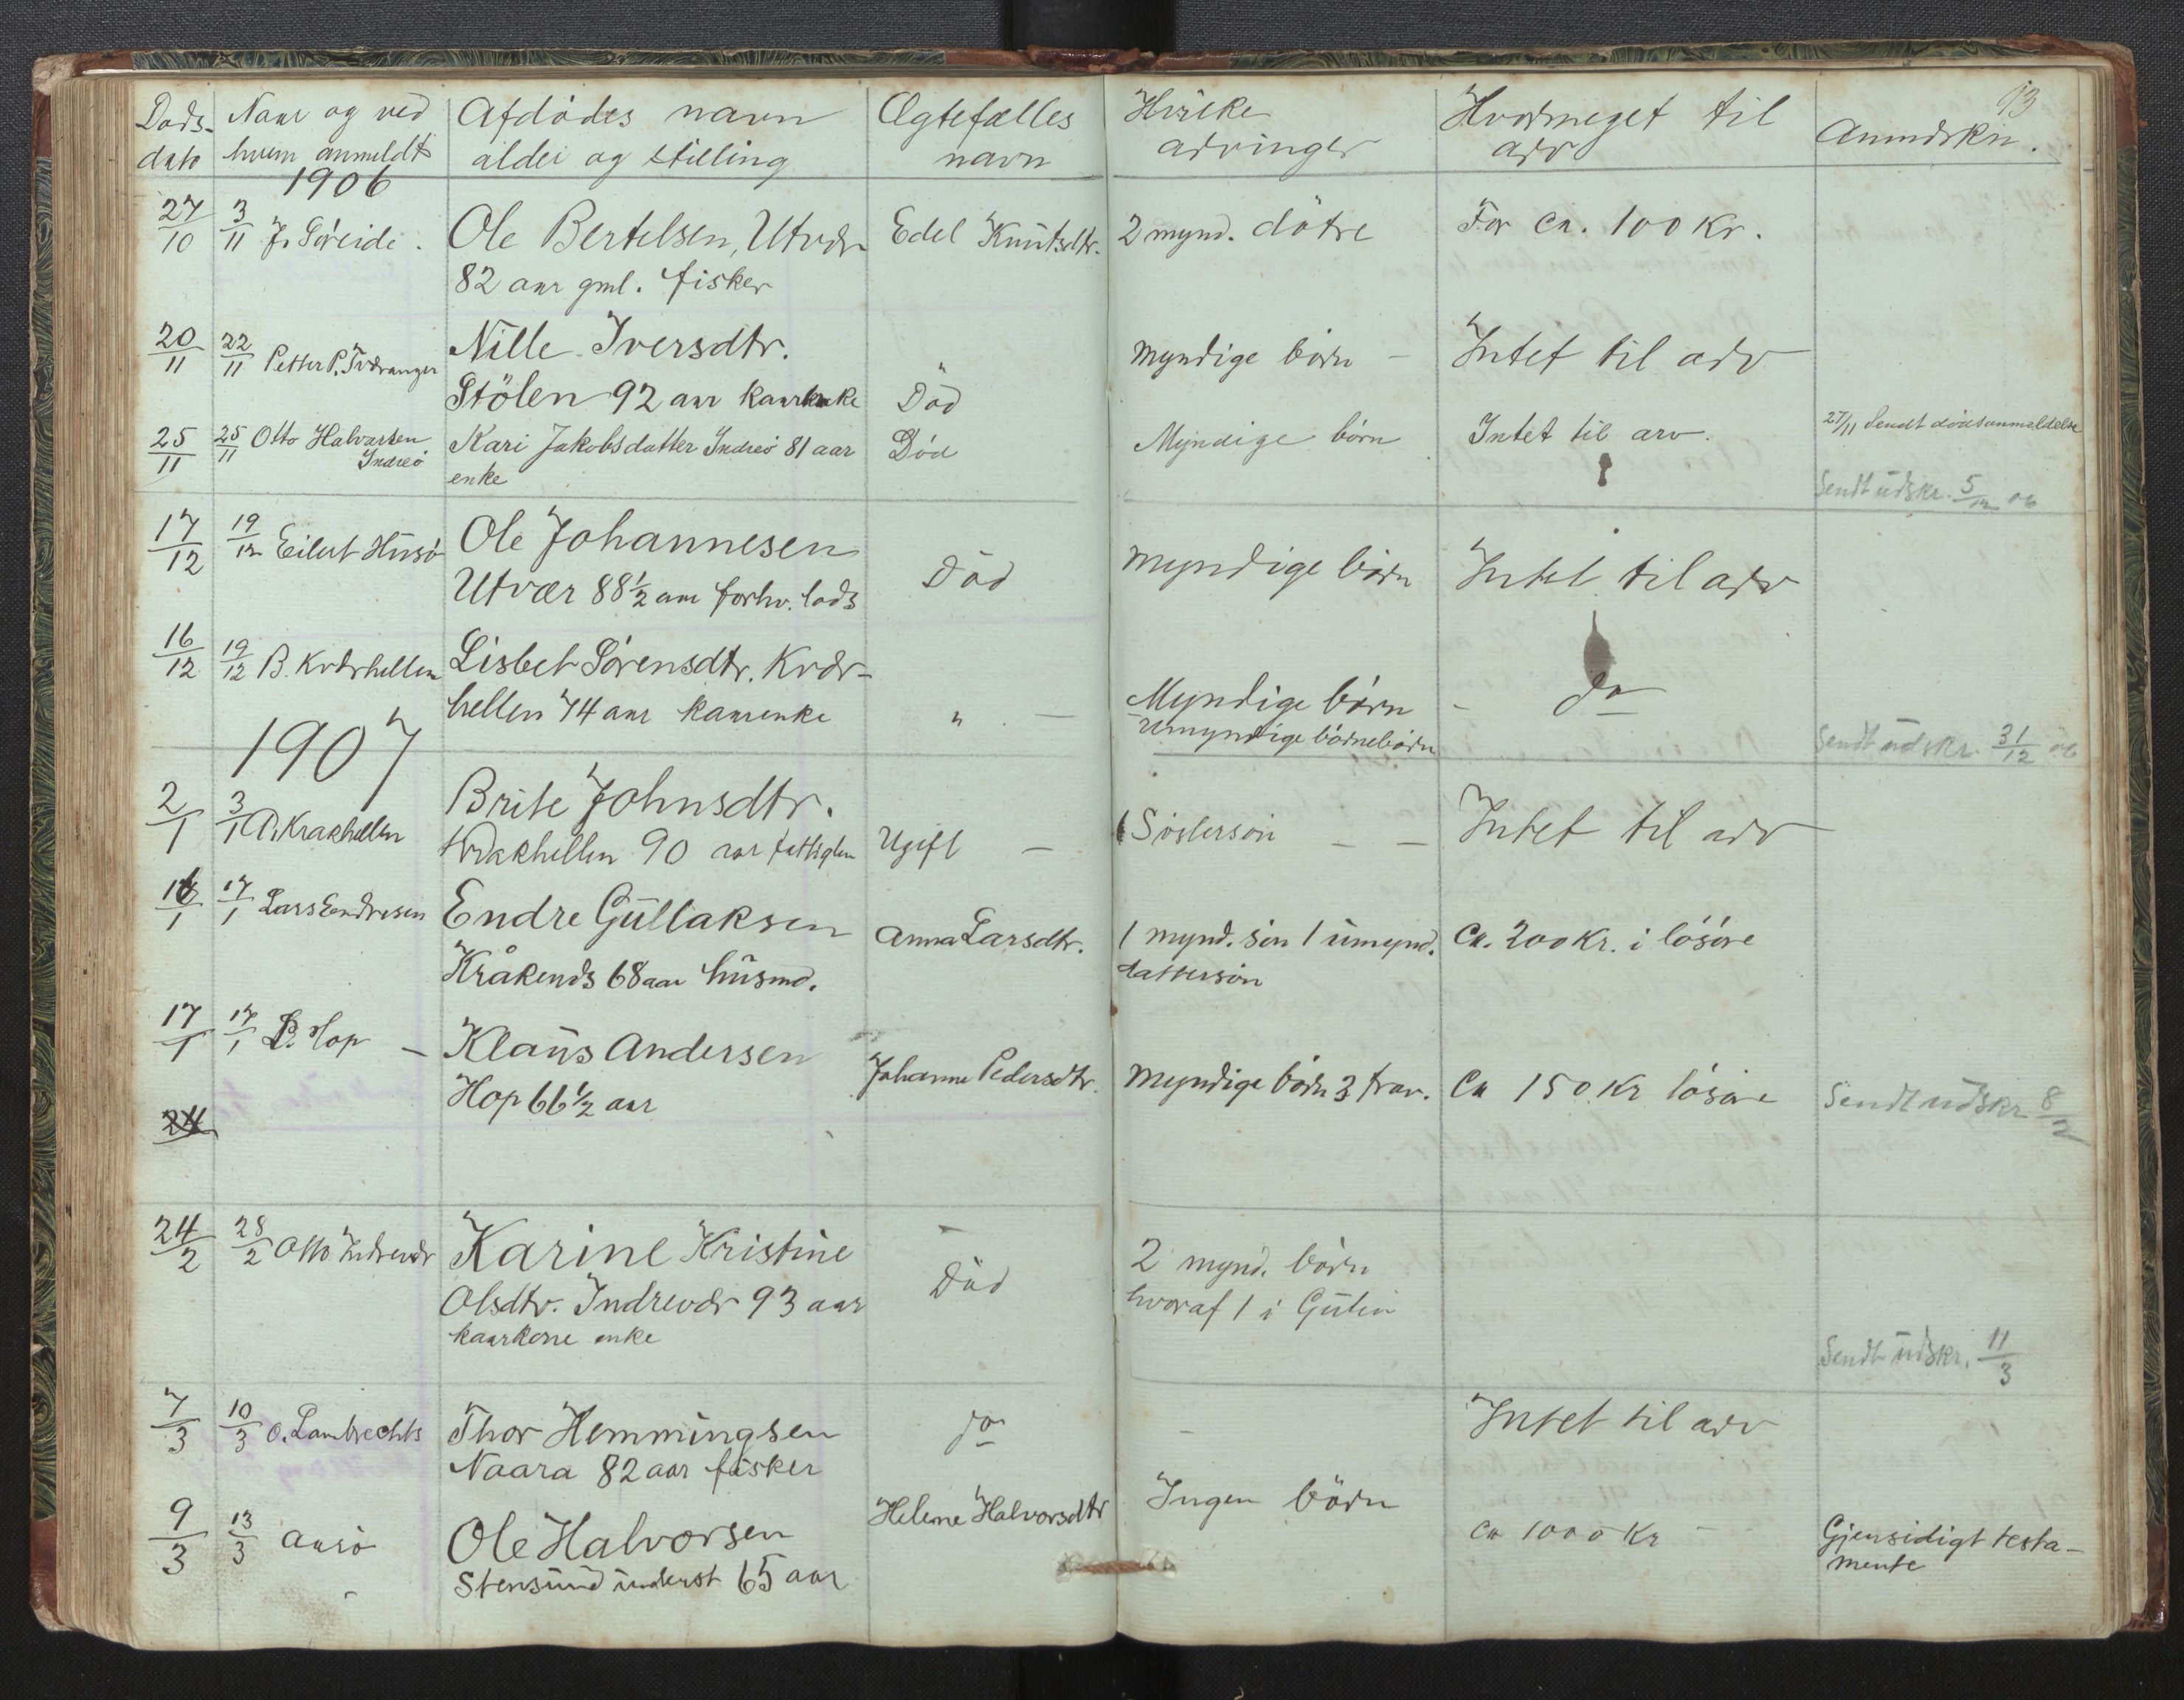 93
Døds-
dato
Naar og ved
hvem anmeldt
Afdødes navn
alder og stilling
Ægtefælles
navn
Hvilke
arvinger
Hvormeget til
arv
Anmdrkn.
1906
27/10 3/11 J. Søreide. Ole Bertelsen, Utvær Edel Knutsdtr. 2 mynd. døtre For ca. 100 Kr.
82 aar gml. fisker
20/11 22/11 Petter P. Tværanger Nille Iversdtr. Myndige børn - Intet til arv
Stølen 92 aar kaarenke Død
25/11 25/11 Otto Halvorsen Kari Jakobsdatter Indreö 81 aar Död Myndige börn Intet til arv. 27/11 Sendt dödsanmeldelse
Indreö enke
Sendt udskr. 5/12 06
17/12 19/12 Eilert Husø Ole Johannesen Myndige børn Intet til arv
Utvær 88½ aar forhv. lods Død
16/12 19/12 B. Kværhellen Lisbet Sørensdtr. Kvær-
hellen 74 aar kaarenke " - Myndige børn - do
Umyndige børnebørn Sendt udskr. 31/12 06
1907
2/1 3/1 A. Krakhellen Brite Johnsdtr.
Krakhellen 90 aar fattiglem Ugift - 1 Søstersøn - - Intet til arv
16/1 17/1 Lars Endresen Endre Gullaksen Anna Larsdtr. 1 mynd. søn 1 umynd. Ca. 200 Kr. i løsøre
Kråkenes 68 aar husmd. dattersøn
17/1 17/1 L. Hop - Klaus Andersen Johanne Pedersdtr. Myndige børn 3 frav. Ca 150 Kr løsøre Sendt udskr 8/2
Hop 66½ aar
24
24/2 28/2 Otto Indrevær Karine Kristine Død 2 mynd. børn
Olsdtr. Indrevær 93 aar hvoraf 1 i Gulen
kaarkone enke
Sendt udskr. 11/3
7/3 10/3 O. Lambrechts Thor Hemmingsen do - Intet til arv
Naara 82 aar fisker
9/3 13/3 Ole Halvorsen Helene Halvorsdtr Ingen børn ca 1000 Kr - Gjensidigt testa-
Stensund inderst 65 aar mente